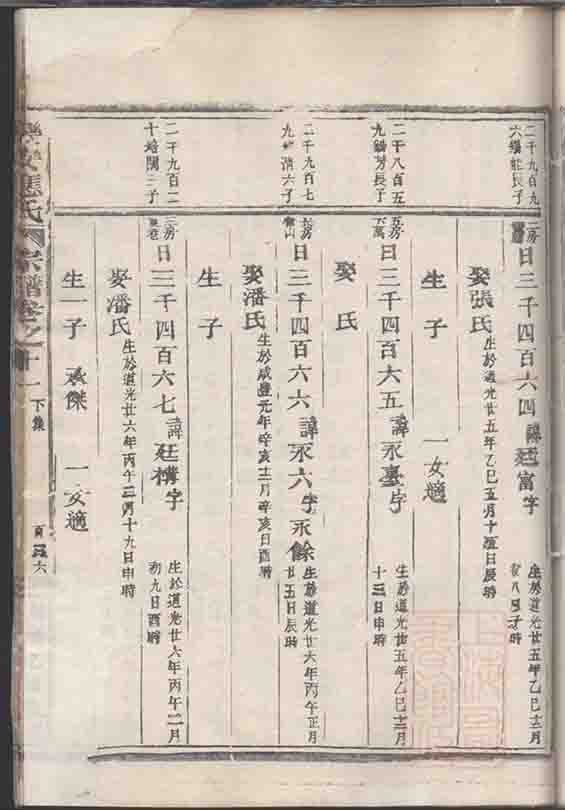 二千九百九
六 莊長子
二房
日三千四百六四諱廷富字
生於道光廿五年乙巳十二月
八日子時
娶張氏生於道光廿五年乙巳五月十五日辰時
生子 一女適
二千八百五
九 芳長子
五房
六萬
日三千四百六五諱永臺字
生於道光廿五年乙巳十二月
十三日申時
娶 氏
二千九百七
九 清六子
長房
山
日三千四百六六諱永六字永餘
生於道光廿六年丙午正月
廿五日辰時
娶潘氏生於咸豐元年辛亥十二月辛亥日酉時
生子
二千九百二
十培開三子
三房
日三千四百六七諱廷構字
生於道光廿六年丙午二月
初九日酉時
娶潘氏生於道光廿六年丙午二月十九日申時
生一子 承傑 一女適
應氏宗譜卷之十一 下集 頁 六
上海圖書館